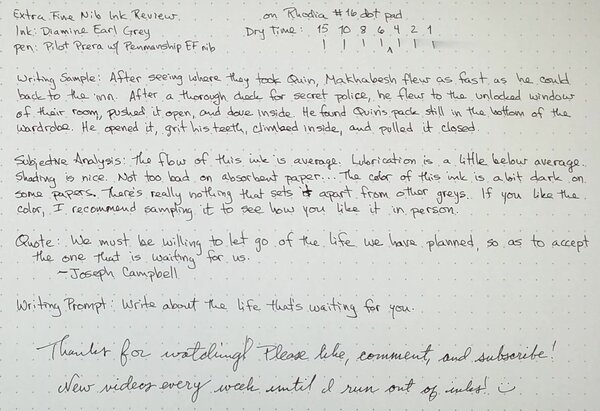 Extra Fine Nib Ink Review
on Rhodia #16 dot pad
Ink: Diamine Earl Grey
Dry Time: 15 10 8 6 4 2 1
pen: Pilot Prera w/ Penmanship EF nib
Writing Sample: After seeing where they took Quin, Makhabesh flew as fast as he could
back to the inn. After a thorough check for secret police, he flew to the unlocked window
of their room, pushed it open, and dove inside. He found Quin's pack still in the bottom of the
wardrobe. He opened it, grit his teeth, climbed inside, and pulled it closed.
Subjective Analysis: The flow of this ink is average. Lubrication is a little below average.
Shading is nice. Not too bad on absorbent paper... The color of this ink is a bit dark on
some papers. There's really nothing that sets it apart from other greys. If you like the
color, I recommend sampling it to see how you like it in person.
Quote: We must be willing to let go of the life we have planned, so as to accept
the one that is waiting for us.
~Joseph Campbell
Writing Prompt: Write about the life that's waiting for you.
Thanks for watching! Please like, comment, and subscribe!
New videos every week until I run out of inks! :)